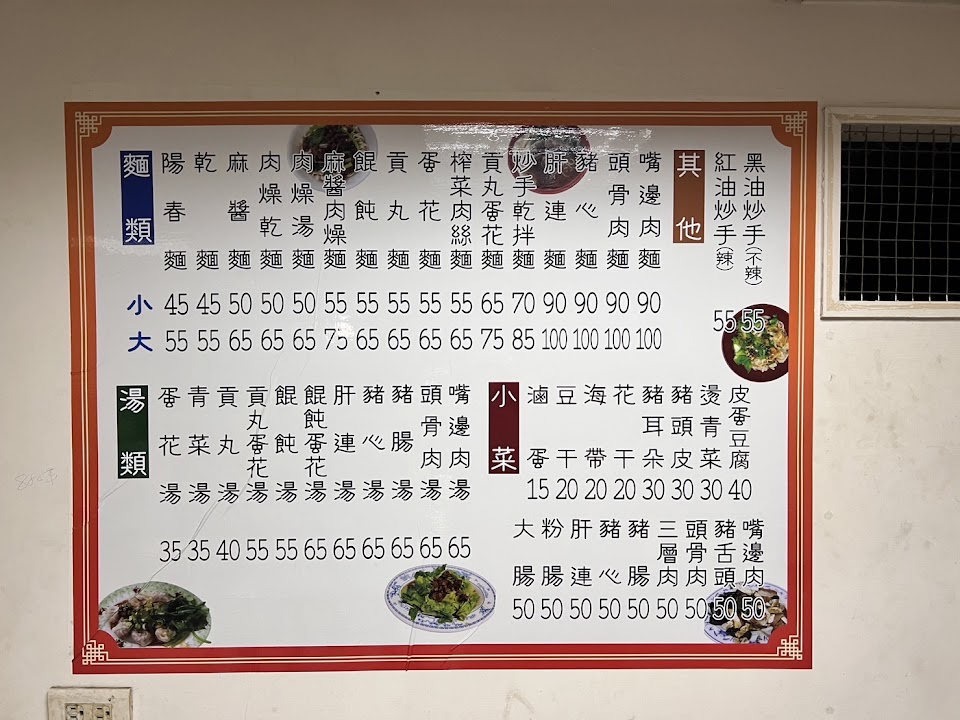 麵類
陽春麵
乾麵
麻醬麵
肉燥乾麵
肉燥湯麵
麻醬肉燥麵
餛飩麵
貢丸麵
蛋花麵
榨菜肉絲麵
貢丸蛋花麵
炒手乾拌麵
肝連麵
豬心麵
頭骨肉麵
嘴邊肉麵
小 45 45 50 50 50 55 55 55 55 55 65 70 90 90 90 90
大 55 55 65 65 65 75 65 65 65 65 75 85 100 100 100 100
其他
紅油炒手(辣)
黑油炒手(不辣)
55 55
湯類
蛋花湯
青菜湯
貢丸湯
貢丸蛋花湯
餛飩湯
餛飩蛋花湯
肝連湯
豬心湯
豬腸湯
頭骨肉湯
嘴邊肉湯
35 35 40 55 55 65 65 65 65 65 65
小菜
滷蛋
豆干
海帶
花干
豬耳朵
豬頭皮
燙青菜
皮蛋豆腐
15 20 20 20 30 30 30 40
大腸
粉腸
肝連
豬心
豬腸
三層肉
頭骨肉
豬舌頭
嘴邊肉
50 50 50 50 50 50 50 50 50